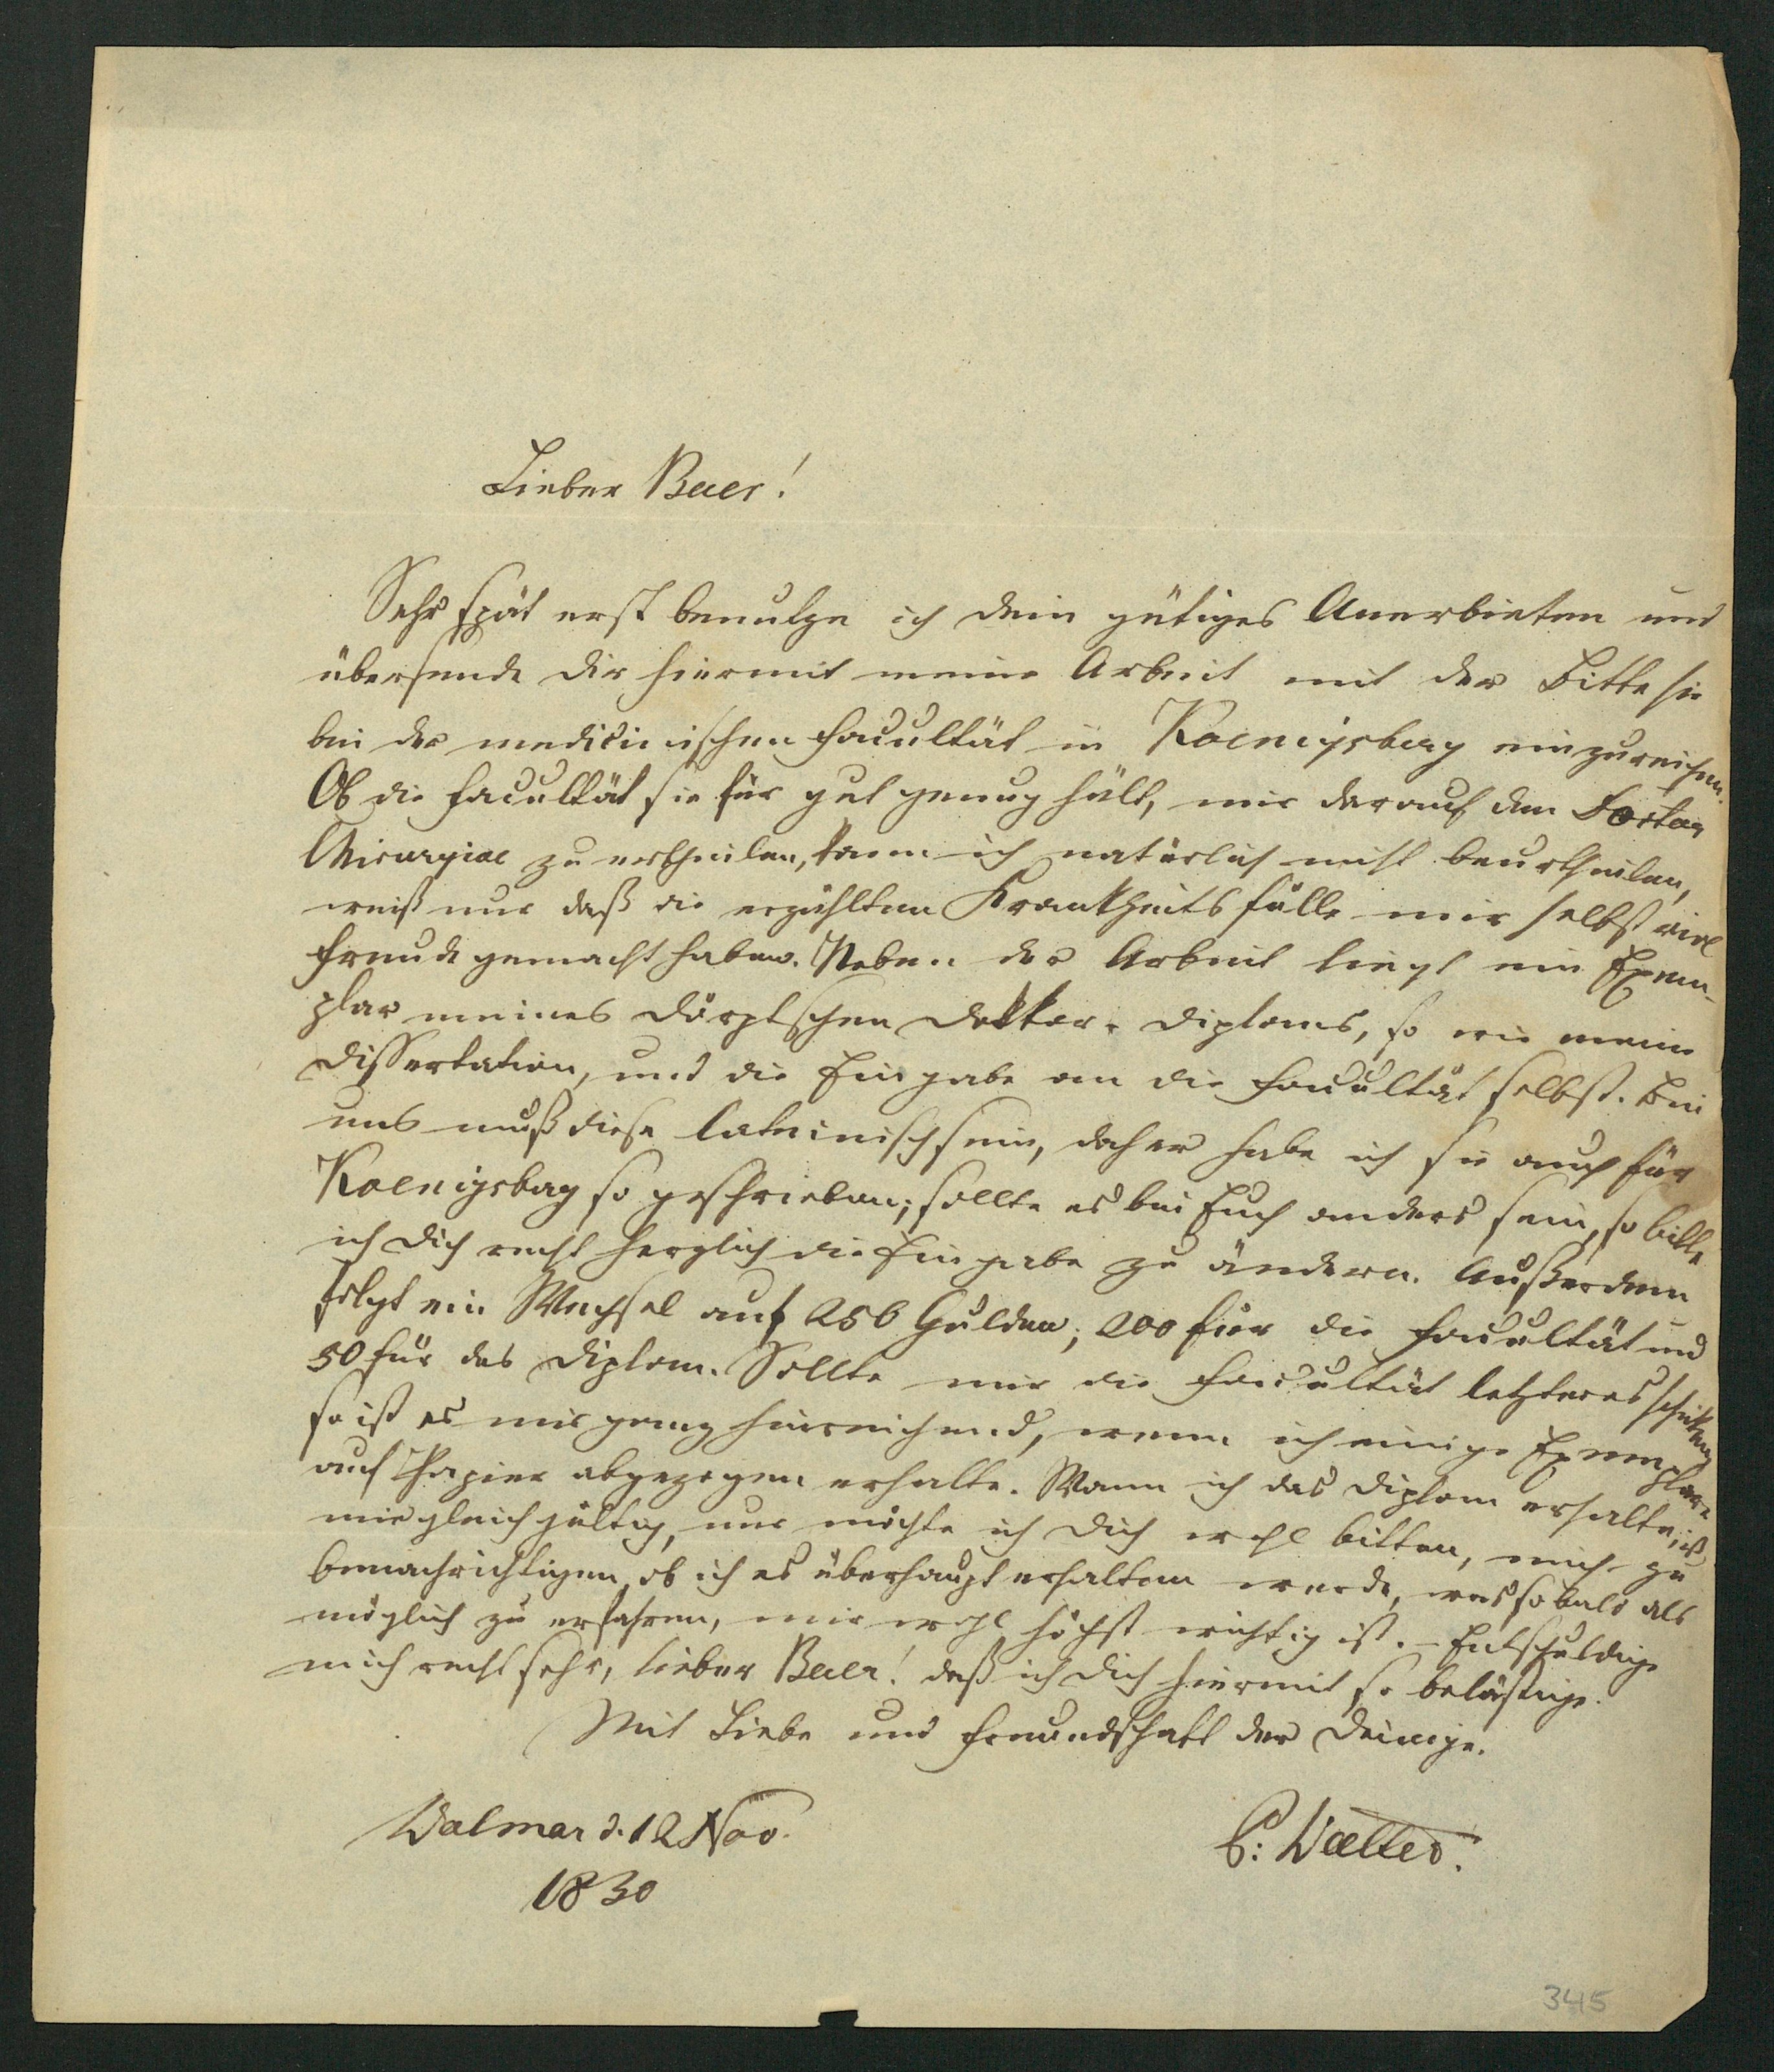 Lieber Baer!
Sehr spät erst benutze ich dein gütiges Anerbieten und
übersende dir hiermit meine Arbeit mit der Bitte sie
bei der medicinischen Facultät in Koenigsberg einzureichen.
Ob die Facultät sie für gut genug hält, mir darauf den Doctor
Chirurgiae zu ertheilen, kann ich natürlich nicht beurtheilen,
weiß nur daß die erzählten Krankheitsfälle mir selbst viel
Freude gemacht haben. Neben der Arbeit liegt ein Exem-
plar meines dörptschen Doktor-Diploms, so wie meine
Dissertation, und die Eingabe an die Facultät selbst. Bei
uns muß diese lateinisch sein, daher habe ich sie auch für
Koenigsberg so geschrieben; sollte es bei Euch anders sein, so bitte
ich dich recht herzlich die Eingabe zu ändern. Außerdem
folgt ein Wechsel auf 250 Gulden; 200 für die Facultät und
50 für das Diplom. Sollte mir die Facultät letzteres schicken
so ist es mir ganz hinreichend, wenn ich einige Exemplare
auf Papier abgezogen erhalte. Wann ich das Diplom erhalte, ist
mir gleichgültig, nur möchte ich Dich wohl bitten, mich zu
benachrichtigen, ob ich es überhaupt erhalten werde, was sobald als
möglich zu erfahren, mir wohl höchst wichtig ist. – Entschuldige
mich recht sehr, lieber Baer! daß ich dich hiermit so belästige.
Mit Liebe und Freundschaft der Deinige.
Walmar d. 12 Nov.
1830
P: Walter.
345